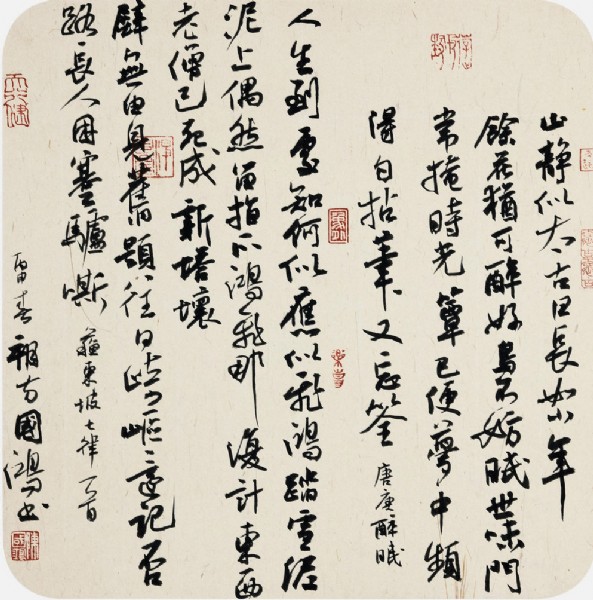 山静似太古日長如小年
餘花猶可醉好鳥不妨眠世味門
常掩時光簟已便夢中頻
得句拈筆又忘筌 唐庚醉眠
人生到處知何似應似飛鴻踏雪泥
泥上偶然留指爪鴻飛那復計東西
老僧已死成新塔壞
壁無由見舊題往日崎嶇還記否
路長人困蹇驢嘶 蘇東坡七律一首
春 方國鴻書